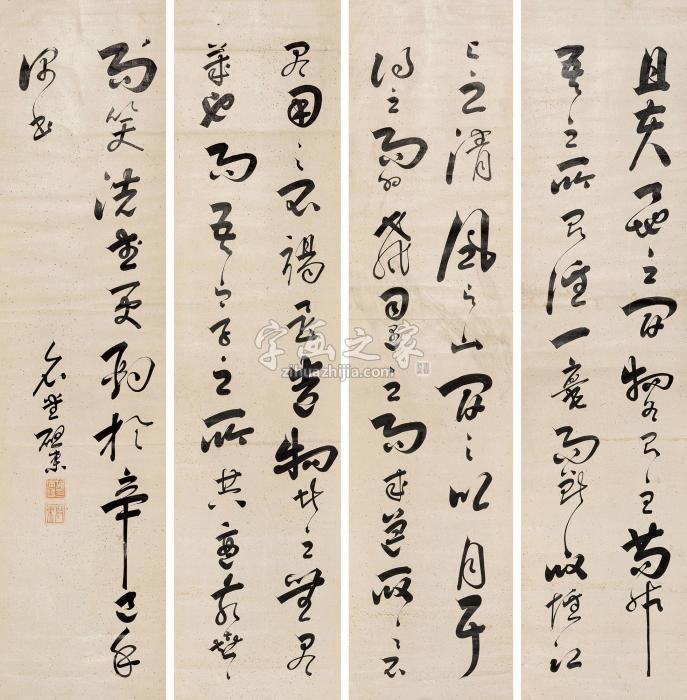 且夫天地之間物各有主苟非
吾之所有雖一毫而莫取惟江
上之清風與山間之明月耳
得之而為聲目遇之而成色取之不
盡用之不竭是造物者之無盡
藏也而吾與子之所共
而笑洗盞更酌於辛巳年
書
字画之家
zihuazhijia.com